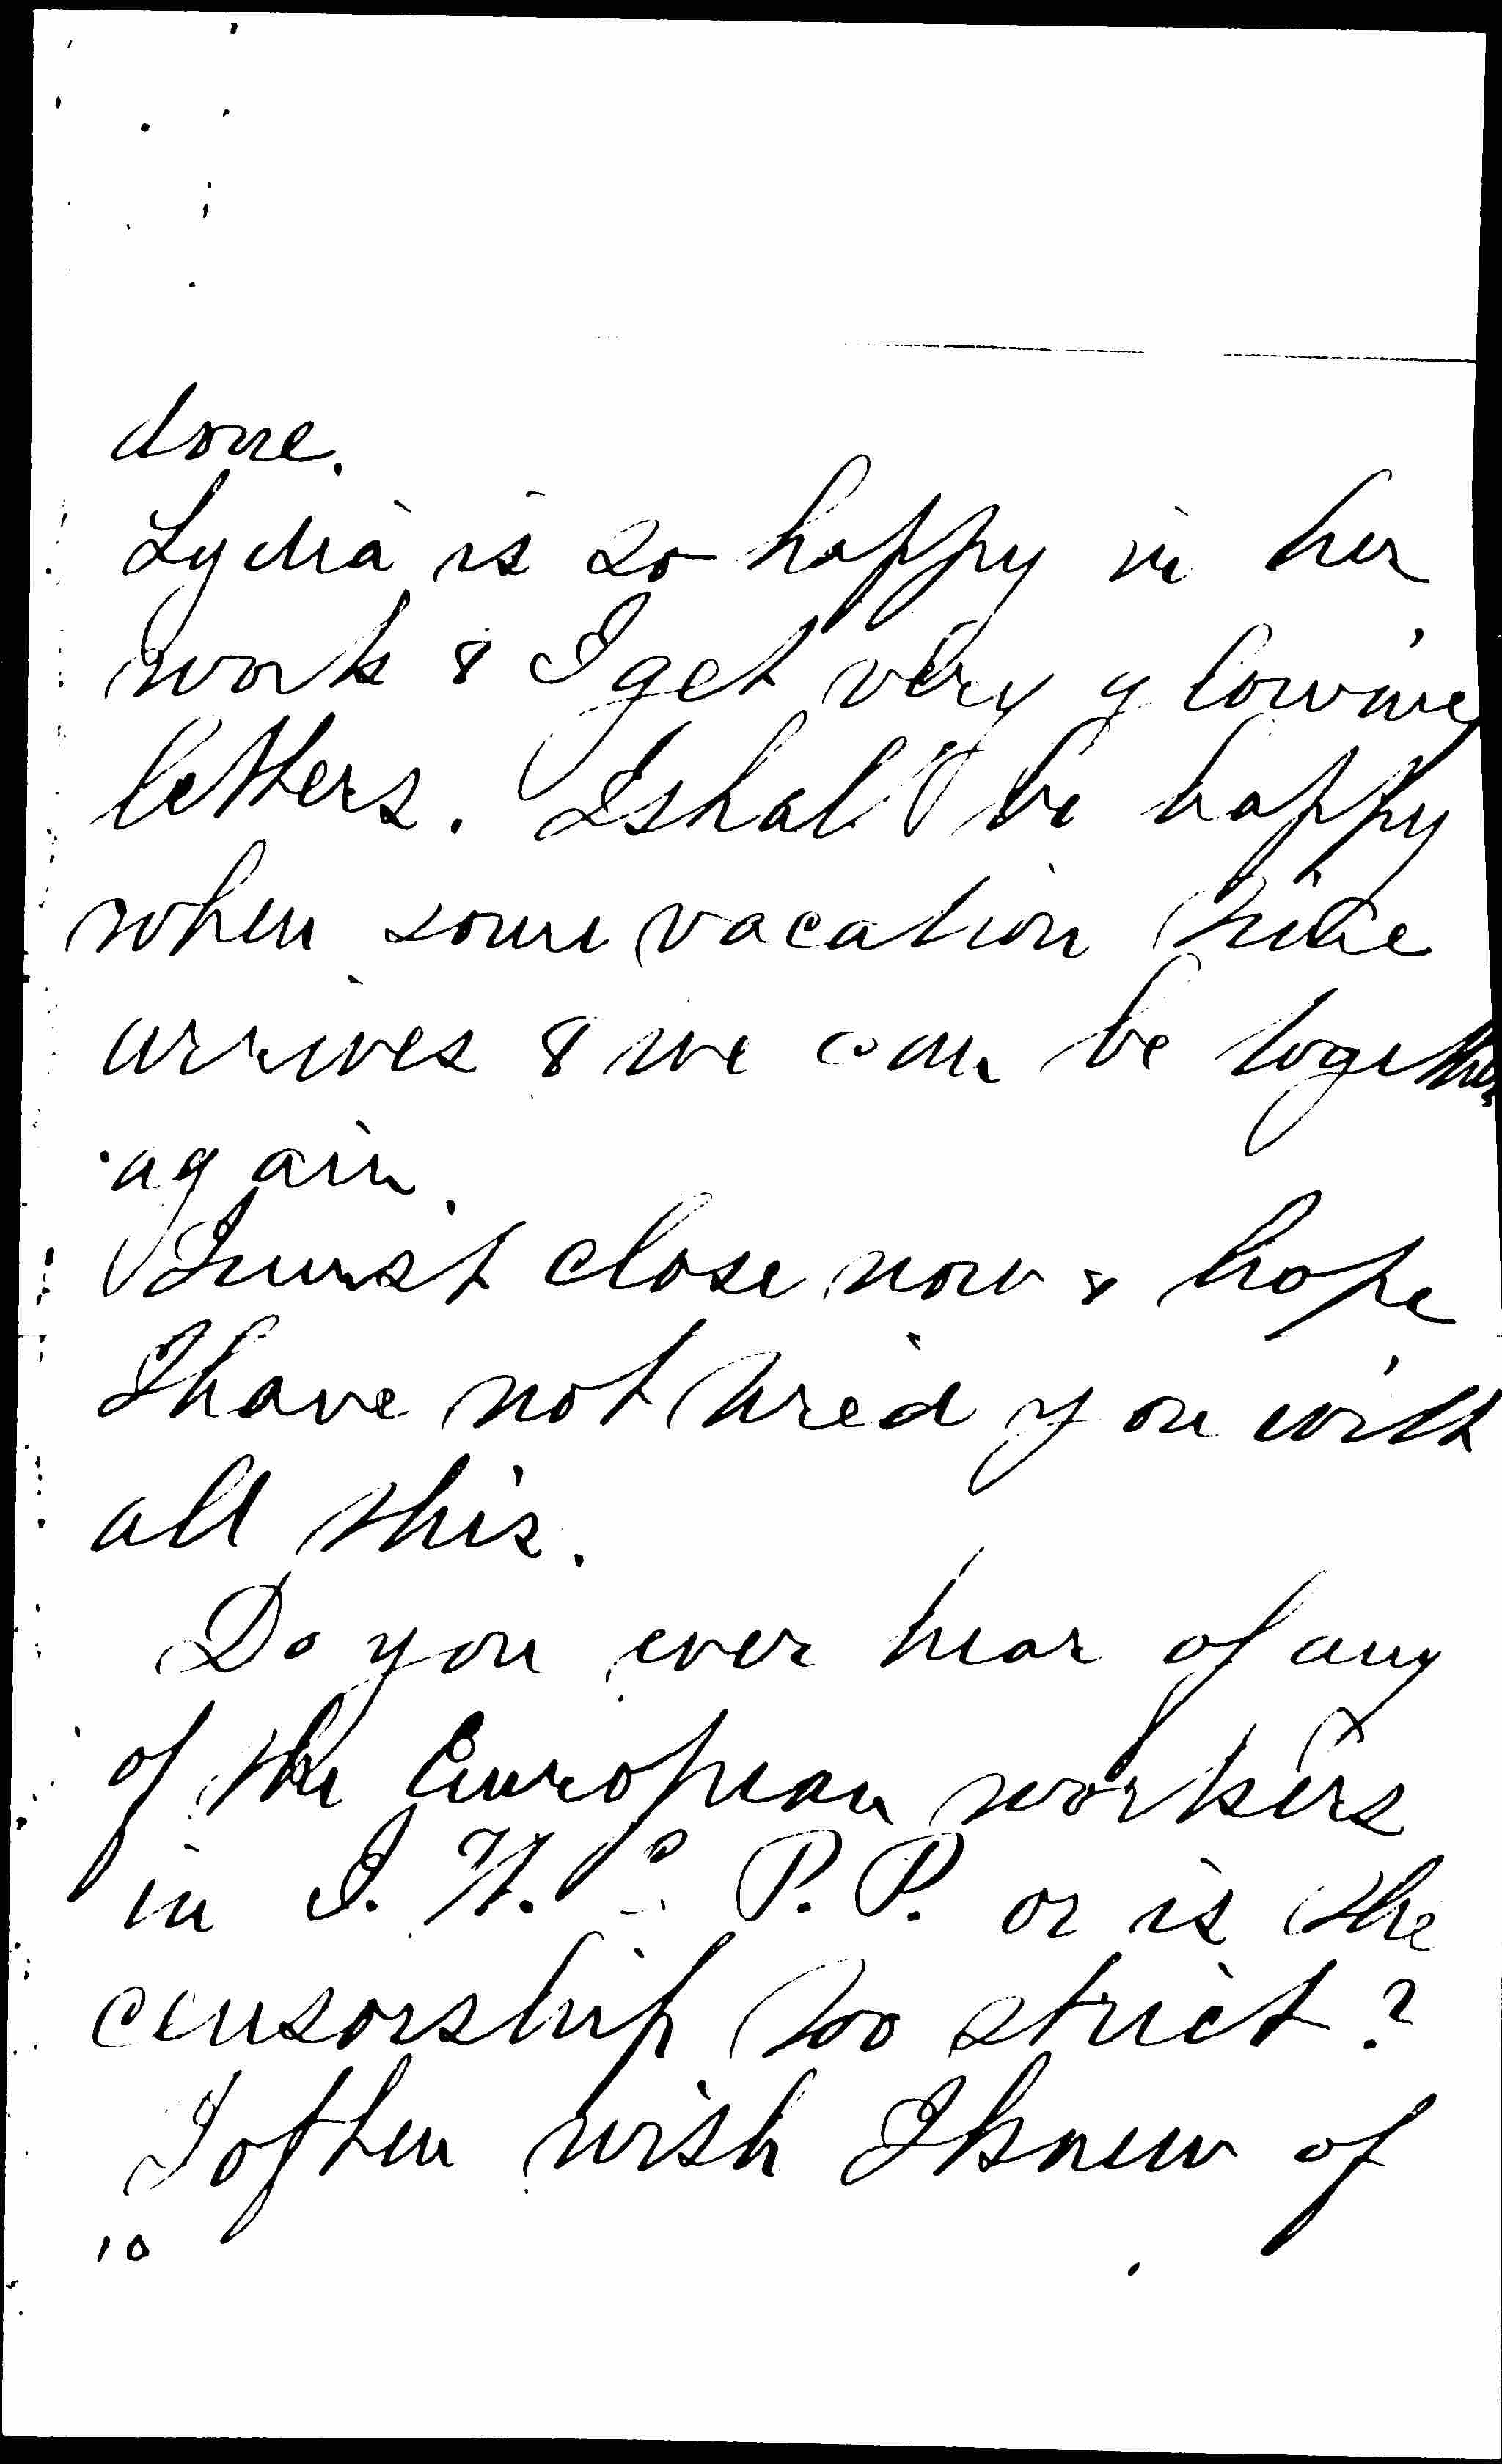 done.
Lydia is so happy in her
work & I get very glowing
letters. I shall be happy
when some vacation time
arrives & we can be together
again.
I must close now & hope
I have not tired you with
all this.
Do you ever hear of any
of the European workers
in I. W. C. P. P. or is the
censorship too strict?
I often wish I knew of
10